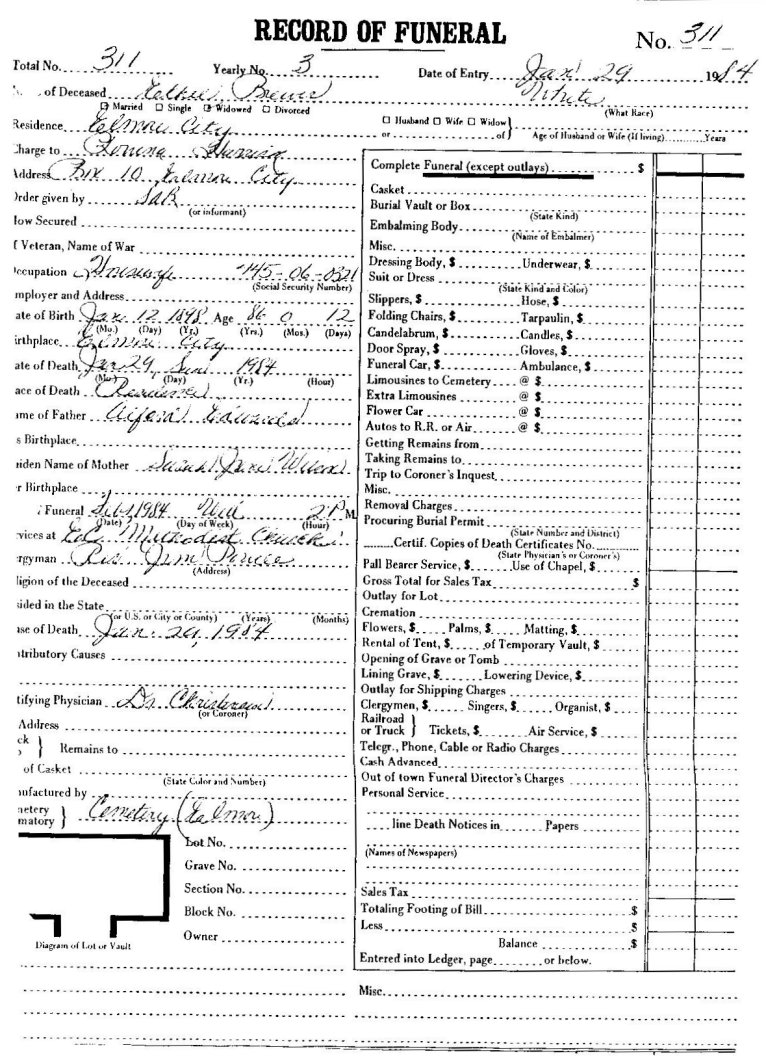 RECORD OF FUNERAL
No. 311
Total No. 311 Yearly No. 3 Date of Entry Jan 29 1984
of Deceased Brewer White
Married Single Widowed Divorced (What Race)
Residence Elmore City
Husband Wife Widow
or of Age of Husband or Wife (If living) Years
Charge to
Address Box 10 Elmore City
Order given by
(or informant)
How Secured
f Veteran, Name of War
Occupation Housewife
(Social Security Number)
mployer and Address
ate of Birth Jan 12 1898 Age 86 0 12
(Mo.) (Day) (Yr.) (Yrs.) (Mos.) (Days)
irthplace Elmore City
ate of Death Jan 29, Sun 1984
(Mo.) (Day) (Yr.) (Hour)
ace of Death Residence
ame of Father Edwards
s Birthplace
iden Name of Mother Jane Wilson
r Birthplace
Funeral 1984 2 P M
(Date) (Day of Week) (Hour)
vices at E.C. Methodist Church
rgyman Rev. Jim
(Address)
ligion of the Deceased
sided in the State
(or U.S. or City or County) (Years) (Months)
use of Death Jan. 29, 1984
ntributory Causes
tifying Physician Dr.
(or Coroner)
Address
ck
Remains to
of Casket
(State Color and Number)
nufactured by
netery
matory Cemetery (Elmore)
Lot No.
Grave No.
Section No.
Block No.
Owner
Diagram of Lot or Vault
Complete Funeral (except outlays) $
Casket
Burial Vault or Box
(State Kind)
Embalming Body
(Name of Embalmer)
Misc.
Dressing Body, $ Underwear, $
Suit or Dress
(State Kind and Color)
Slippers, $ Hose, $
Folding Chairs, $ Tarpaulin, $
Candelabrum, $ Candles, $
Door Spray, $ Gloves, $
Funeral Car, $ Ambulance, $
Limousines to Cemetery @ $
Extra Limousines @ $
Flower Car @ $
Autos to R.R. or Air @ $
Getting Remains from
Taking Remains to
Trip to Coroner's Inquest
Misc.
Removal Charges
Procuring Burial Permit
(State Number and District)
Certif. Copies of Death Certificates No.
(State Physician's or Coroner's)
Pall Bearer Service, $ Use of Chapel, $
Gross Total for Sales Tax $
Outlay for Lot
Cremation
Flowers, $ Palms, $ Matting, $
Rental of Tent, $ of Temporary Vault, $
Opening of Grave or Tomb
Lining Grave, $ Lowering Device, $
Outlay for Shipping Charges
Clergymen, $ Singers, $ Organist, $
Railroad
or Truck Tickets, $ Air Service, $
Telegr., Phone, Cable or Radio Charges
Cash Advanced
Out of town Funeral Director's Charges
Personal Service
line Death Notices in Papers
(Names of Newspapers)
Sales Tax
Totaling Footing of Bill $
Less $
Balance $
Entered into Ledger, page or below.
Misc.